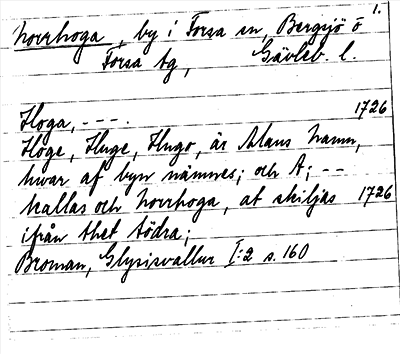 1.
Norrhoga, by i Forsa sn, Bergsjö o
Forsa tg, Gävleb. l.
Hoga, - - -. 1726
Höge, Huge, Hugo, är Mans Namn,
hwar af byn nämnes; och A; - -
kallas och Norrhoga, at skiljas 1726
ifrån thet södra;
Broman, Glysisvallur I:2 s. 160